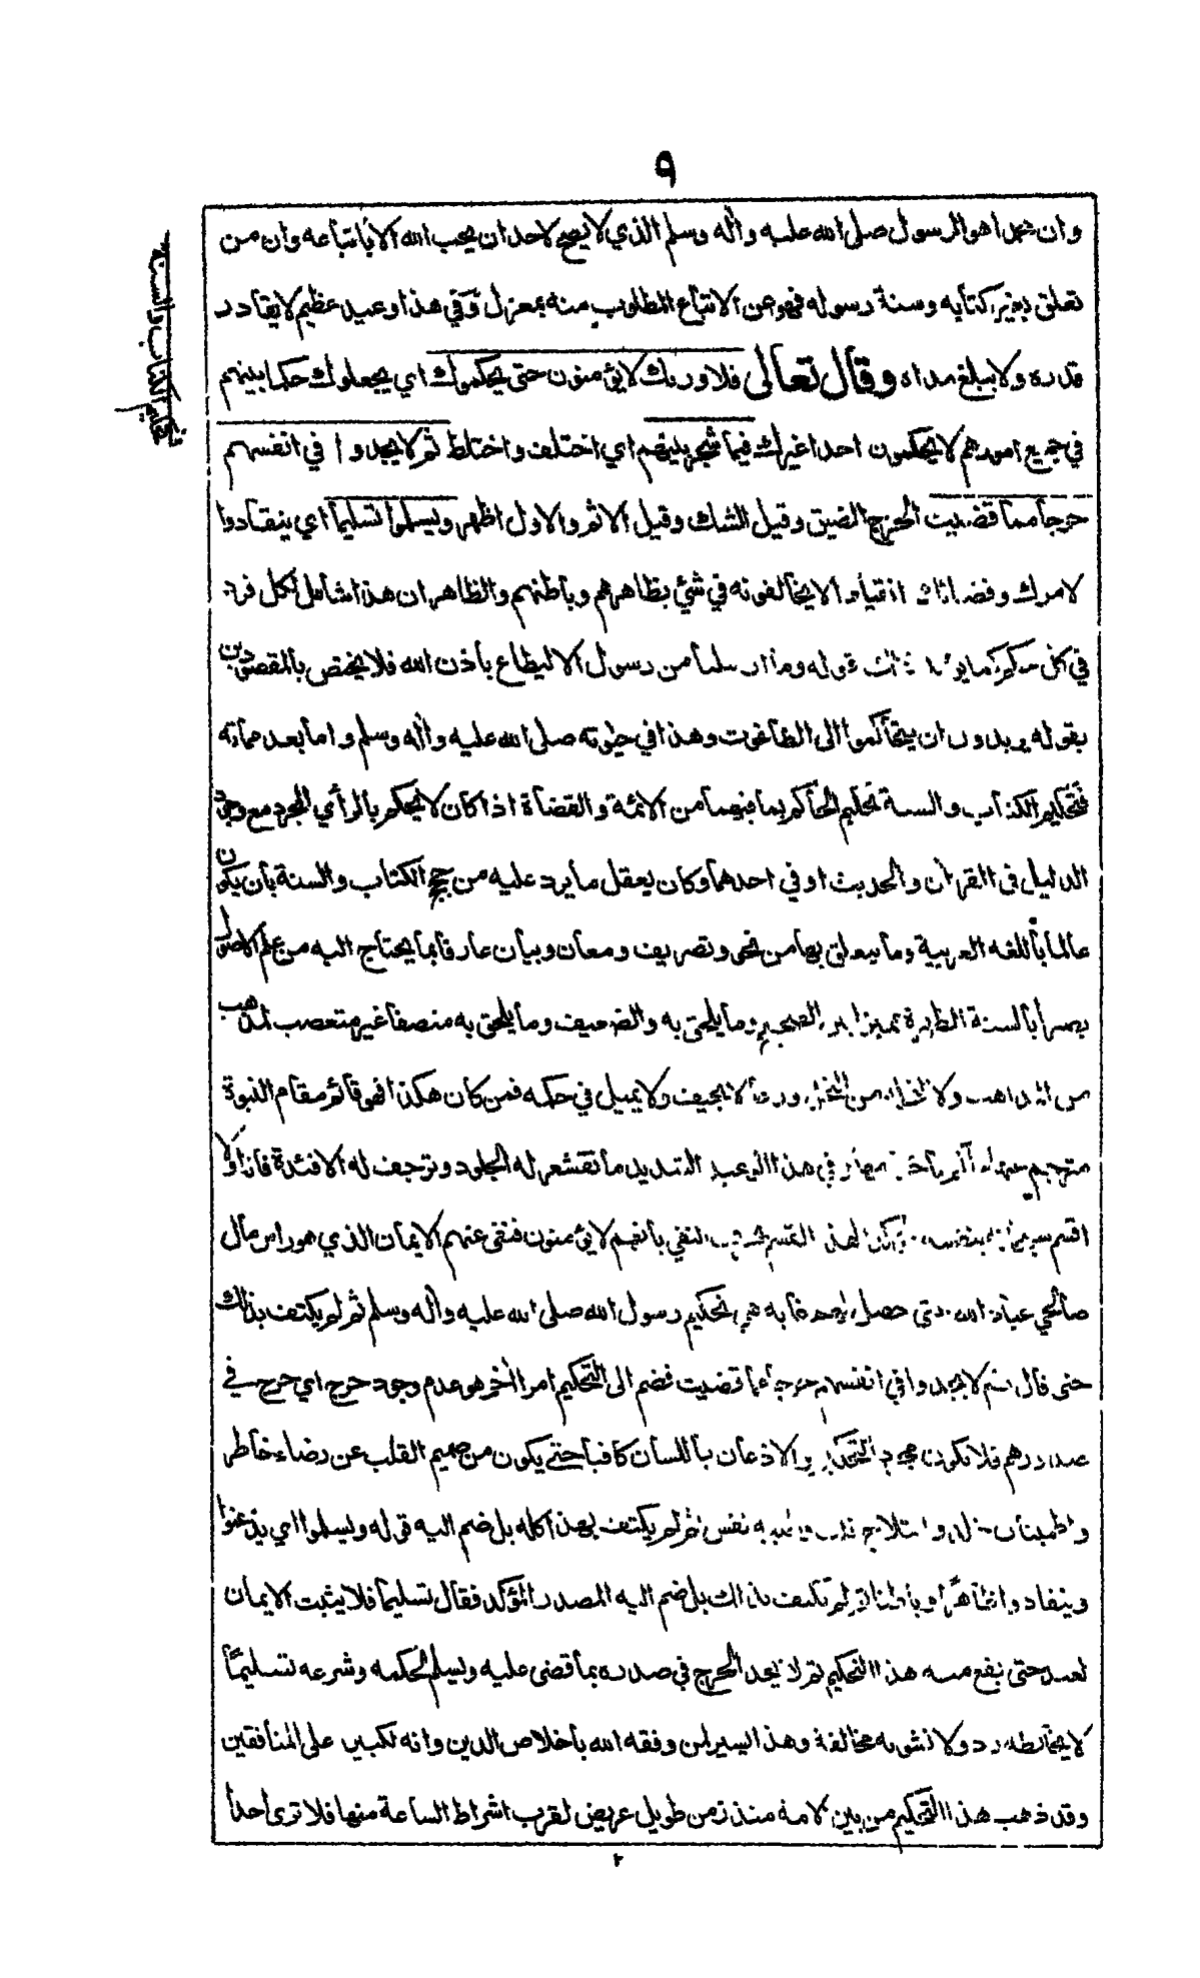 ٩
وان محمدا هو الرسول صلى الله عليه واله وسلم الذي لا يصح لاحد ان يحب الله الا باتباعه وان من
تعلق بغير كتابه وسنة رسوله فهو عن الاتباع المطلوب منه بمعزل وفي هذا وعيد عظيم لا يقادر
قدره ولا يبلغ مداه وقال تعالى فلا وربك لا يؤمنون حتى يحكموك اي يجعلوك حكما بينهم
في جميع امورهم لا يحكمون احدا غيرك فيما شجر بينهم اي اختلف واختلط ثم لا يجدوا في انفسهم
حرجا مما قضيت الحرج الضيق وقيل الشك وقيل الاثم والاول اظهر ويسلموا تسليما اي ينقادوا
لامرك وقضائك انقيادا لا يخالفونه في شيء بظاهرهم وباطنهم والظاهر ان هذا شامل لكل فرد
في كل حكم كما يؤيد ذلك قوله وما ارسلنا من رسول الا ليطاع باذن الله فلا يختص بالمقصودين
بقوله يريدون ان يتحاكموا الى الطاغوت وهذا في حيوته صلى الله عليه واله وسلم واما بعد مماته
فتحكيم الكتاب والسنة تحكيم الحاكم بما فيهما من الائمة والقضاة اذا كان لا يحكم بالرأي المجرد مع وجود
الدليل في القران والحديث او في احدهما وكان يعقل ما يرد عليه من حجج الكتاب والسنة بان يكون
عالما باللغه العربية وما يتعلق بها من نحو وتصريف ومعان وبيان عارفا بما يحتاج اليه من علم الاصول
بصيرا بالسنة المطهرة مميزا بين الصحيح وما يلحق به والضعيف وما يلحق به منصفا غير متعصب لمذهب
من المذاهب ولا لنحلة من النحل ورعا لا يحيف ولا يميل في حكمه فمن كان هكذا فهو قائم مقام النبوة
مترجم عنها حاكم باحكامها وفي هذا الوعيد الشديد ما تقشعر له الجلود وترجف له الافئدة فانه اولا
اقسم سبحانه بنفسه مؤكدا لهذا القسم بحرف النفي بانهم لا يؤمنون فنفى عنهم الايمان الذي هو راس مال
صالحي عباد الله حتى حصل لهم غاية هي تحكيم رسول الله صلى الله عليه واله وسلم ثم لم يكتف بذلك
حتى قال ثم لا يجدوا في انفسهم حرجا مما قضيت فضم الى التحكيم امرا اخر هو عدم وجود حرج اي حرج في
صدورهم فلا يكون مجرد التحكيم والاذعان باللسان كافيا حتى يكون من صميم القلب عن رضاء خاطر
واطمينان قلب وانثلاج قلب وطيبة نفس ثم لم يكتف بهذا كله بل ضم اليه قوله ويسلموا اي يذعنوا
وينقادوا ظاهرا وباطنا ثم لم يكتف بذلك بل ضم اليه المصدر المؤكد فقال تسليما فلا يثبت الايمان
لعبد حتى يقع منه هذا التحكيم ثم لا يجد الحرج في صدره بما قضى عليه ويسلم لحكمه وشرعه تسليمًا
لا يخالطه رد ولا تشوبه مخالفة وهذا اليسير لمن وفقه الله باخلاص الدين وانه لكبير على المنافقين
وقد ذهب هذا التحكيم من بين الامة منذ زمن طويل عريض لقرب اشراط الساعة منها فلا ترى احدا
٢
تحكيم الكتاب والسنة